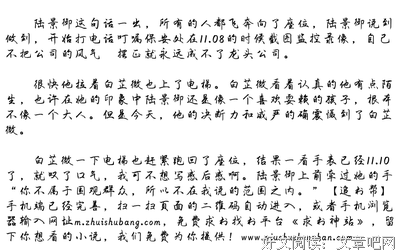 陆景御这句话一出，所有的人都飞奔向了座位，陆景御说到
做到，开始打电话叮嘱保安处在11.08的时候截图监控录像，自己
不把公司的风气　摆正就永远成不了龙头公司。
很快他拉着白芷微也上了电梯。白芷微看着认真的他有点陌
生，也许在她的印象中陆景御还是像一个喜欢耍赖的孩子，根本
不像一个大人。但是今天，他的决断力和威严的确震慑到了白芷
微。
白芷微一下电梯也赶紧跑回了座位，结果一看手表已经11.10
了，就叹了口气，我可不想写感后感啊。陆景御上前牵过她的手
“你不属于围观群众，所以不在我说的范围之内。”【追书帮】
手机端已经完善，扫一扫页面的二维码自动进入，或者手机浏览
器输入网址m.zhuishubang.com，免费求书找书平台《求书神站》，留
下你想看的小说，我们免费为你提供！www.qiushushenzhan.com
好文阅读：文章吧网